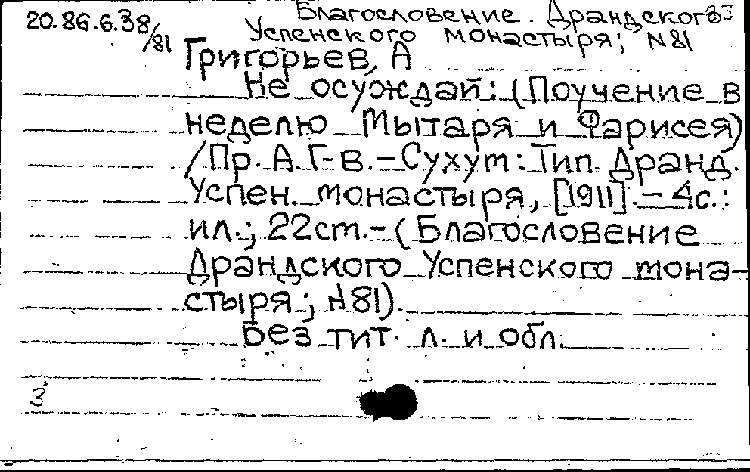 20.86.6.38/81
Благословение. Драндского
Успенского монастыря; N81
Григорьев, А
Не осуждай: (Поучение в
неделю Мытаря и Фарисея)
/Пр. А.Г-в.-Сухум: Тип. Дранд.
Успен. монастыря, [1911].-4с.:
ил.; 22cm.-(Благословение
Драндского Успенского мона-
стыря; N81).
Без тит. л. и обл.
3